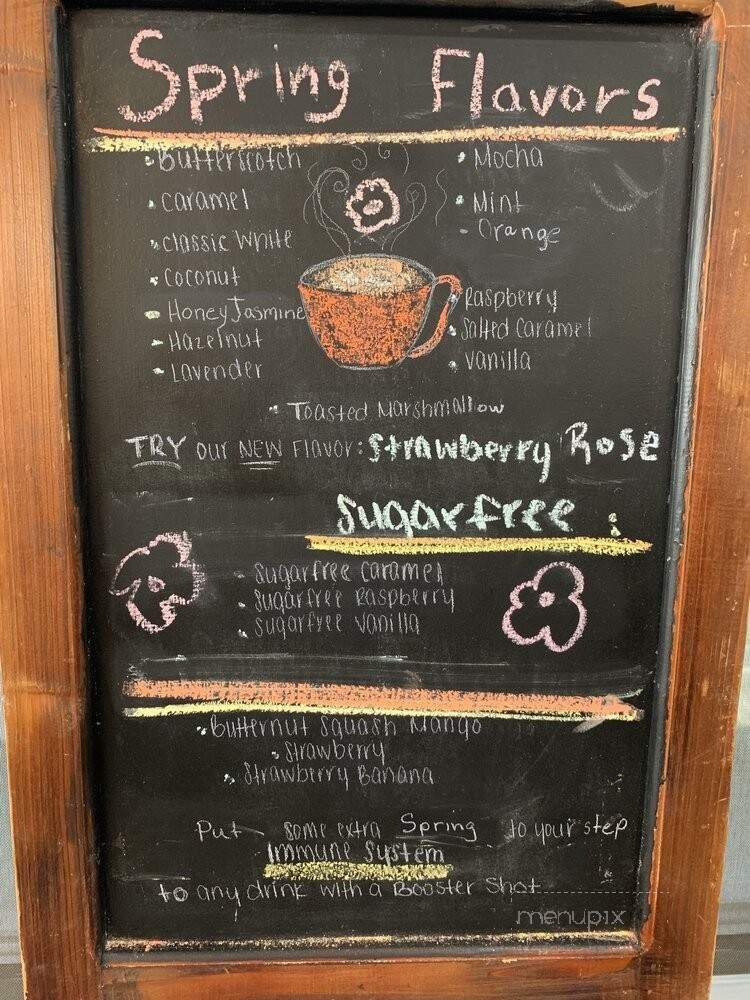 Spring Flavors
• Butterscotch
• caramel
• classic White
• coconut
• Honey Jasmine
• Hazelnut
• Lavender
• Mocha
• Mint
- Orange
• Raspberry
• Salted Caramel
• Vanilla
• Toasted Marshmallow
TRY our NEW Flavor: Strawberry Rose
Sugarfree :
• Sugarfree Caramel
• Sugarfree Raspberry
• Sugarfree Vanilla
• Butternut Squash Mango
• Strawberry
• Strawberry Banana
Put some extra Spring to your step
Immune System
to any drink with a Booster Shot
menupix